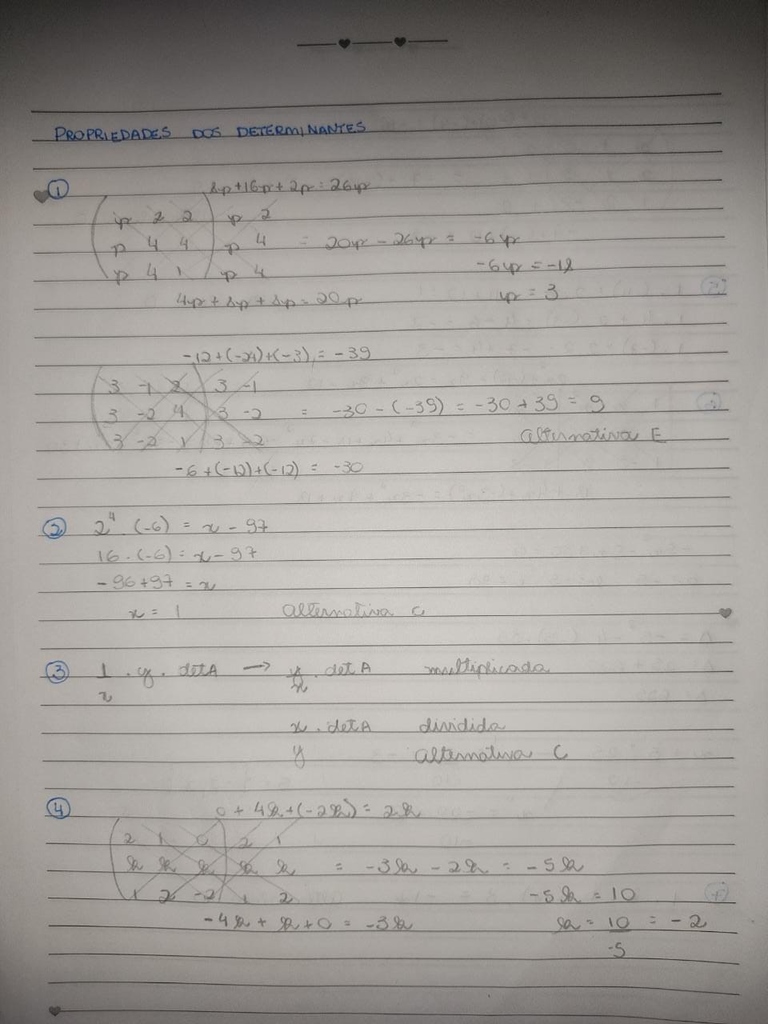 PROPRIEDADES DOS DETERMINANTES
① 8p+16p+2p = 26p
p 2 2 p 2
p 4 4 p 4 = 20p - 26p = -6p
p 4 1 p 4 -6p = -18
4p + 8p + 8p = 20p p = 3
-12+(-24)+(-3) = -39
3 -1 2 3 -1
3 -2 4 3 -2 = -30 - (-39) = -30 + 39 = 9
3 -2 1 3 -2 alternativa E
-6+(-12)+(-12) = -30
② 2⁴ . (-6) = x - 97
16 . (-6) = x - 97
-96+97 = x
x = 1 alternativa C
③ 1/x . y . detA → y/x . det A multiplicada
x . det A dividida
y alternativa C
④ 0 + 4k+(-2k) = 2k
2 1 0 2 1
k k k k k = -3k - 2k = -5k
1 2 -2 1 2 -5k = 10
-4k + k + 0 = -3k k = 10/-5 = -2